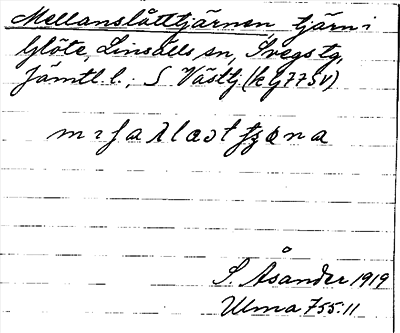 Mellanslåttjärnen, tjärn i
Glöte, Linsälls sn, Svegs tg,
Jämtl. l., S Västtj (k g 775v)
S. Åsander 1919
Ulma 755:11